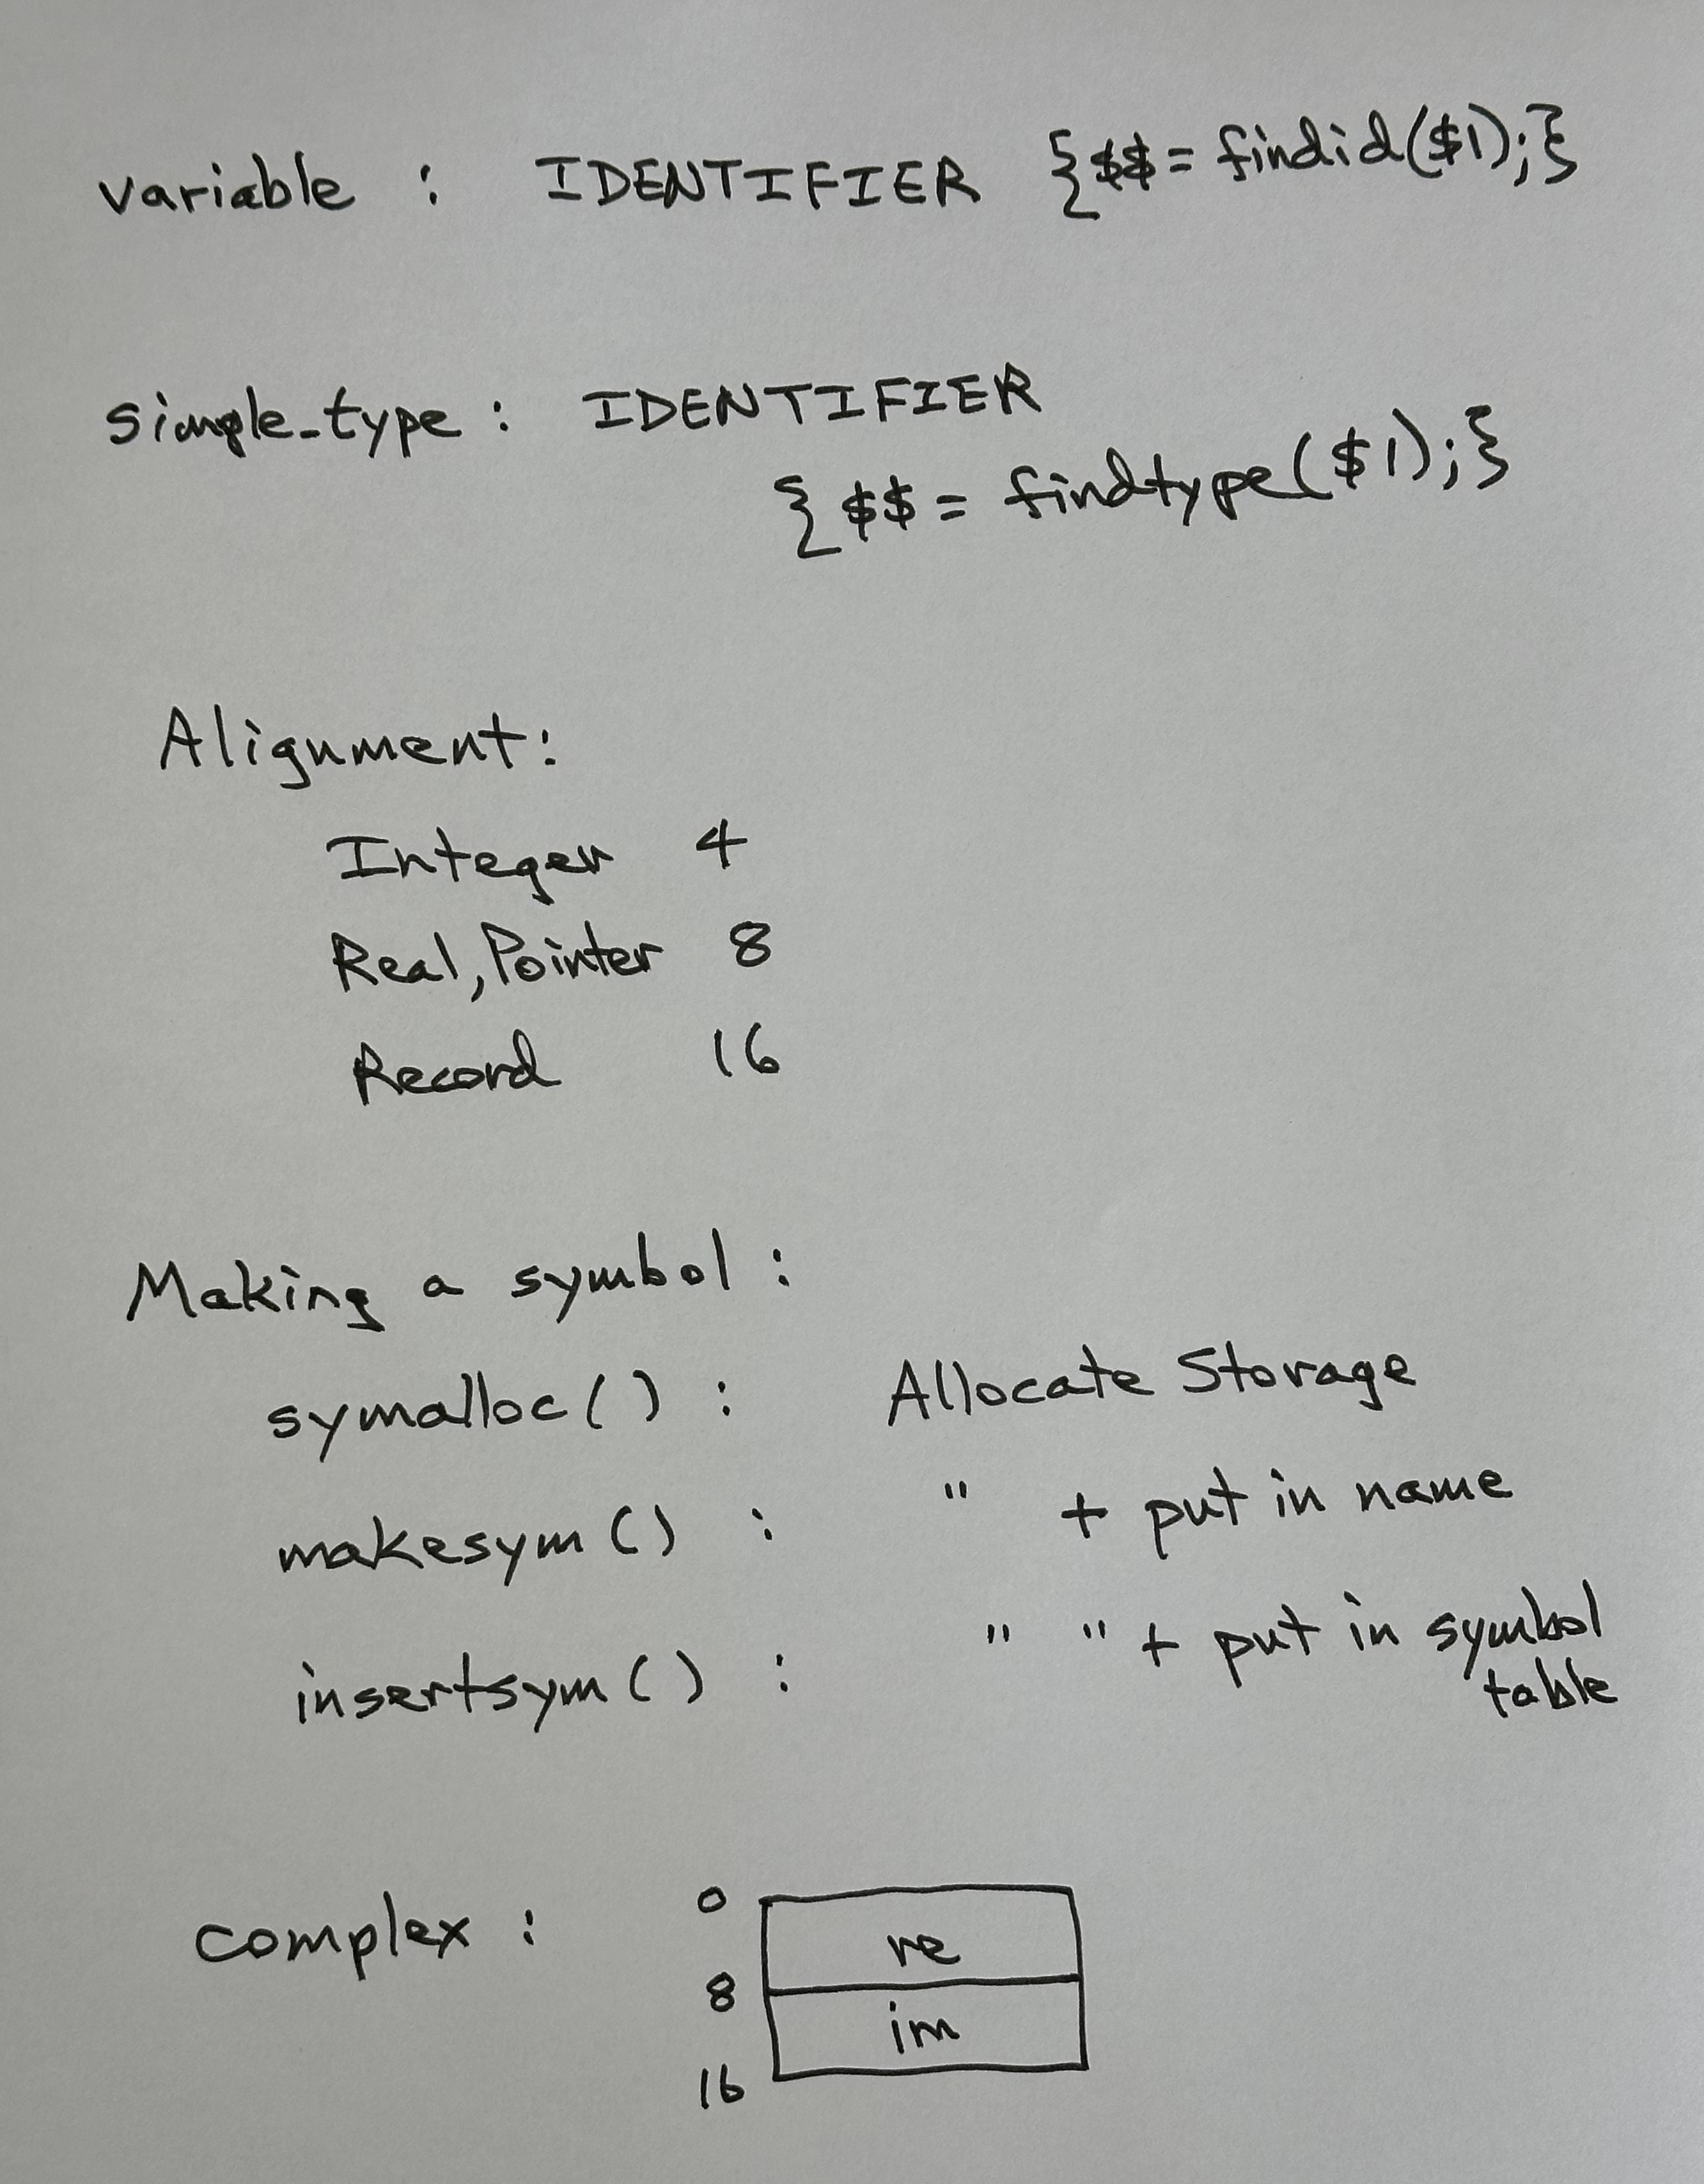 variable : IDENTIFIER {$$ = findid($1);}
simple_type : IDENTIFIER
{$$ = findtype($1);}
Alignment:
Integer 4
Real, Pointer 8
Record 16
Making a symbol :
symalloc() : Allocate Storage
makesym() : " + put in name
insertsym() : " " + put in symbol
table
0
complex : re
8
im
16